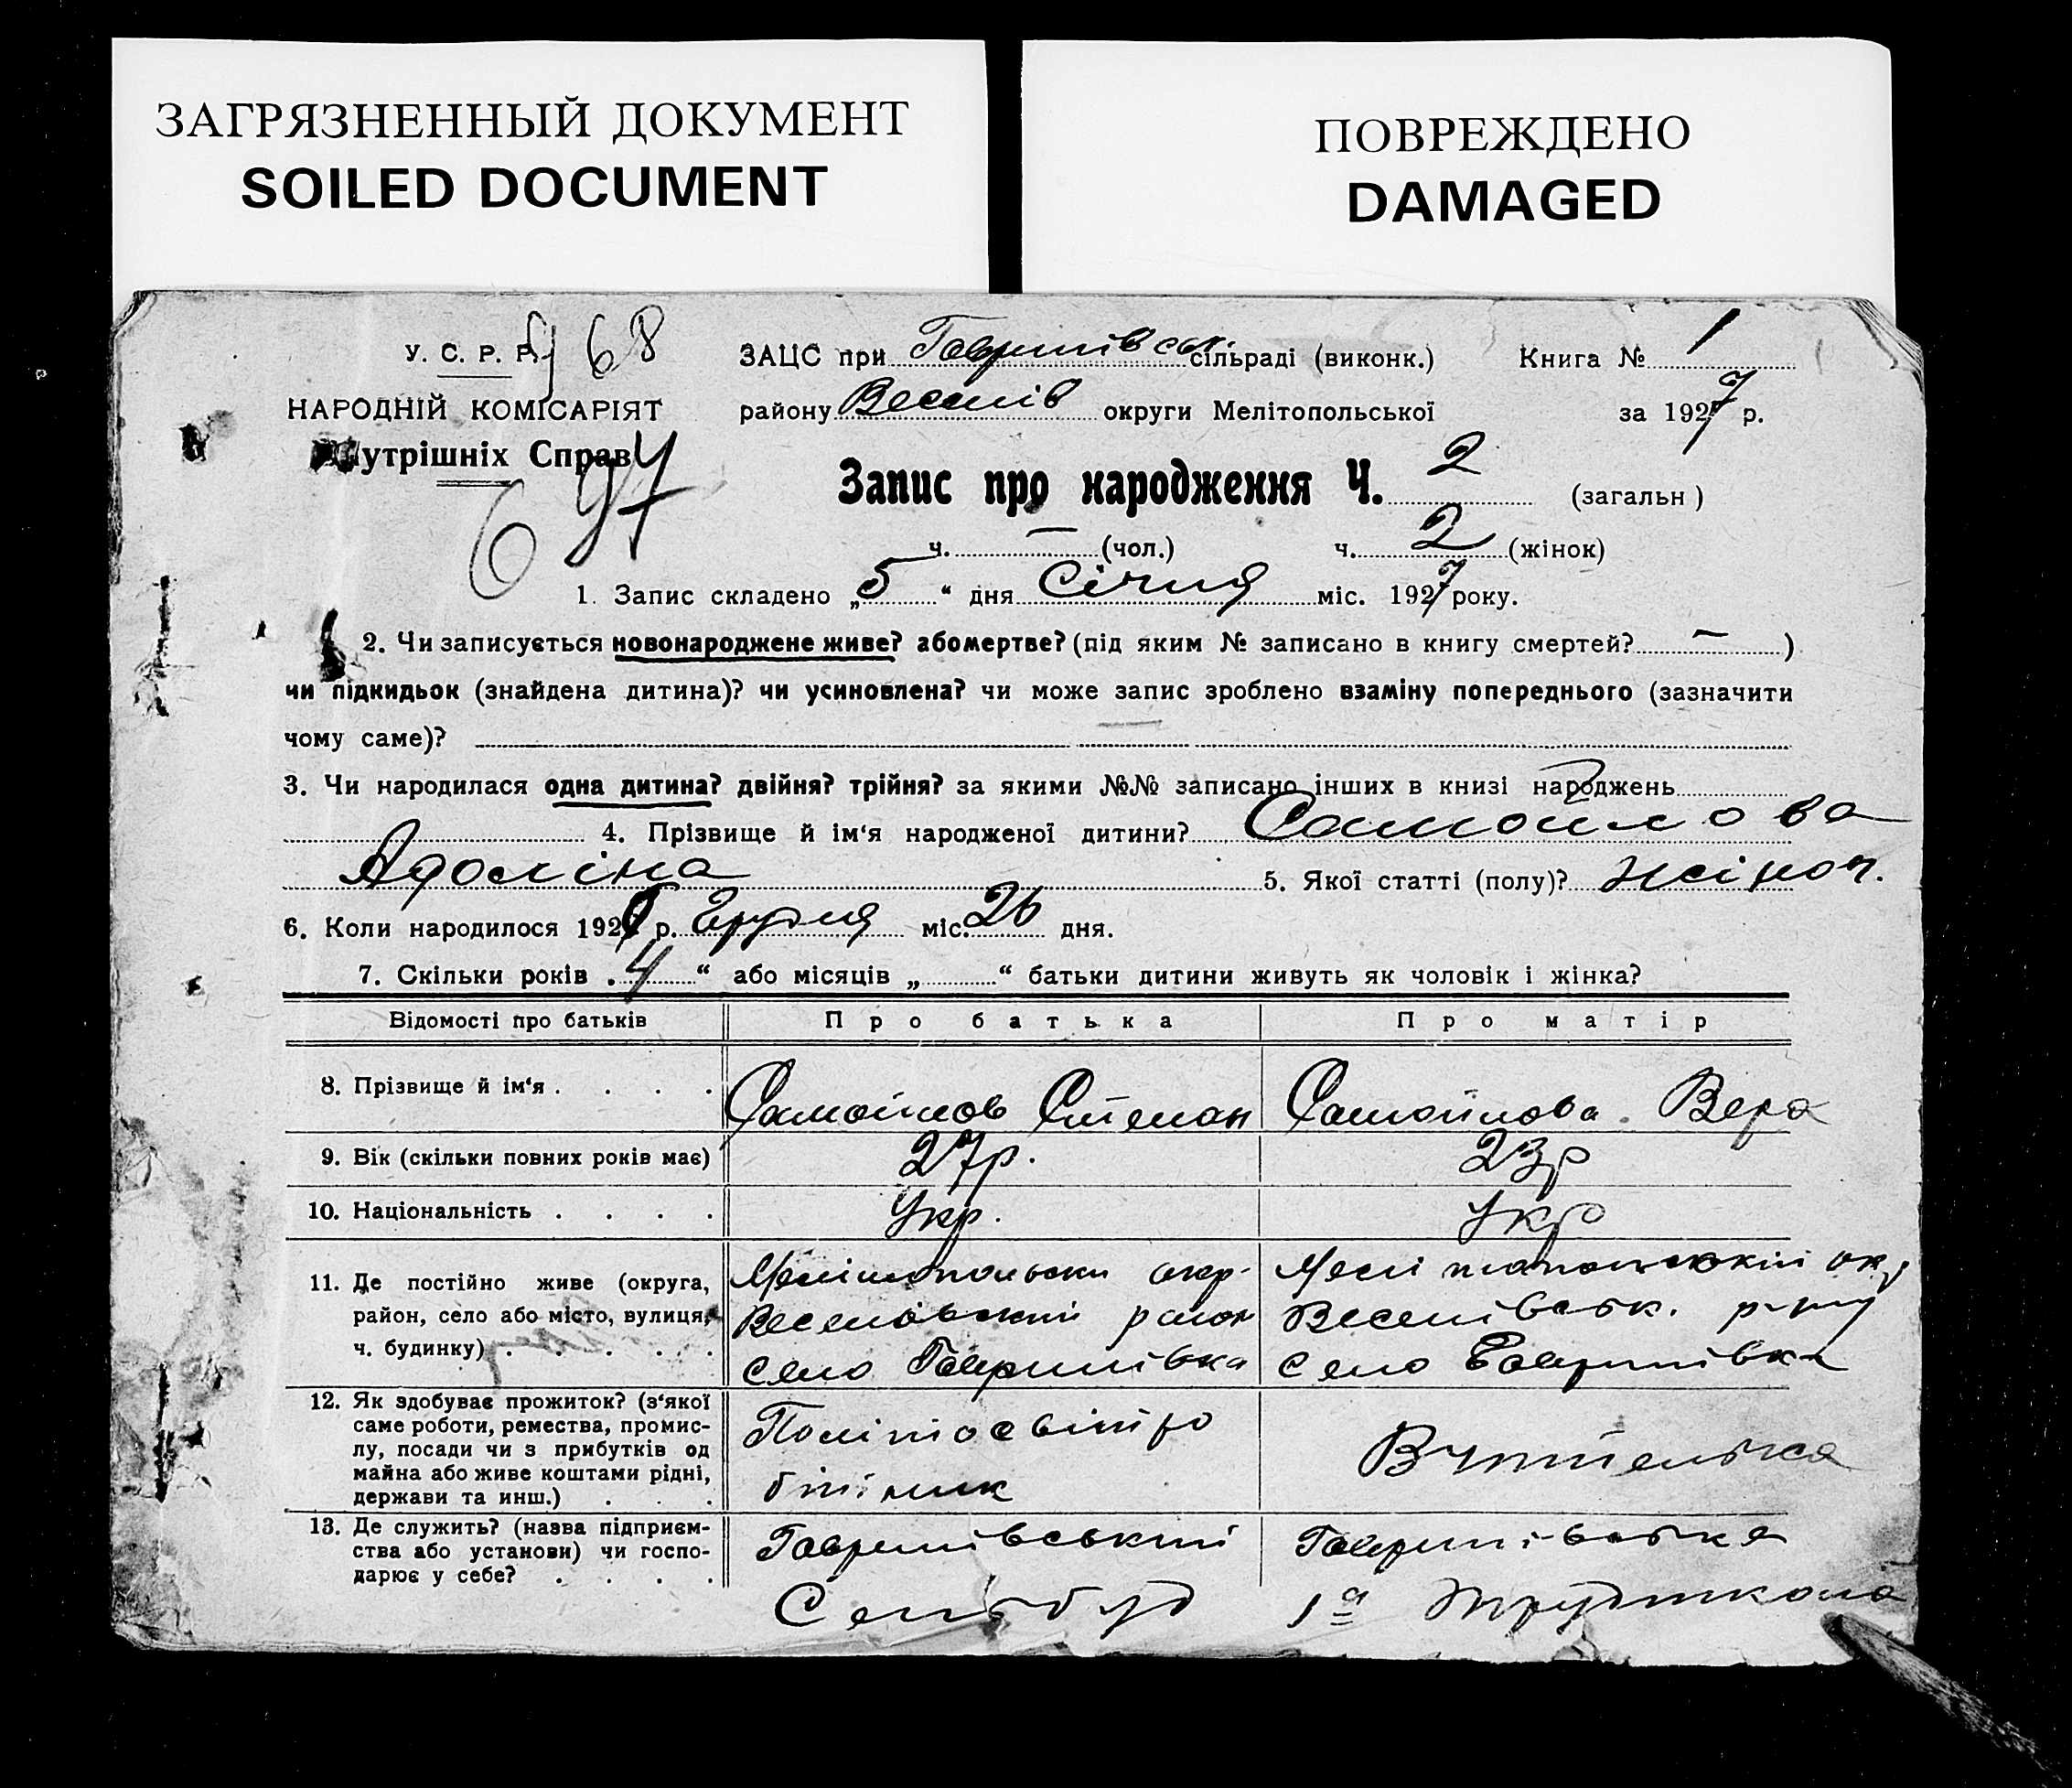 ЗАГРЯЗНЕННЫЙ ДОКУМЕНТ
SOILED DOCUMENT
ПОВРЕЖДЕНО
DAMAGED
У. С. Р. Р. 68
НАРОДНІЙ КОМІСАРІЯТ
Внутрішніх Справ
ЗАЦС при Гаврилівськ. сільраді (виконк.) Книга № 1
району Веселів округи Мелітопольської за 1927 р.
Запис про народження Ч. 2 (загальн)
ч. — (чол.) ч. 2 (жінок)
1. Запис складено „5“ дня Січня міс. 1927 року.
2. Чи записується новонароджене живе? або мертве? (під яким № записано в книгу смертей? — )
чи підкидьок (знайдена дитина)? чи усиновлена? чи може запис зроблено взаміну попереднього (зазначити
чому саме)? —
3. Чи народилася одна дитина? двійня? трійня? за якими №№ записано інших в книзі народжень
4. Прізвище й ім‘я народженої дитини? Самойлова
Адоліна 5. Якої статті (полу)? жіноч.
6. Коли народилося 1926 р. Грудня міс. 26 дня.
7. Скільки років „4“ або місяців „ “ батьки дитини живуть як чоловік і жінка?
Відомості про батьків Про батька Про матір
8. Прізвище й ім‘я . . . . Самойлов Степан Самойлова Вера
9. Вік (скільки повних років має) 27р. 23р
10. Національність . . . . Укр. Укр
11. Де постійно живе (округа,
район, село або місто, вулиця,
ч. будинку) . . . . .
Мелітопольськи окр.
Веселівський район
село Гаврилівка
Мелітопольський окр
Веселівськ. р-ну
Село Гаврилівка
12. Як здобуває прожиток? (з‘якої
саме роботи, ремества, промис-
лу, посади чи з прибутків од
майна або живе коштами рідні,
держави та инш.) . . .
Політосвітро
бітник
Вчителька
13. Де служить? (назва підприєм-
ства або установи) чи госпо-
дарює у себе? . . . .
Гаврилівський
Сельбуд
Гаврилівська
1а Трудшкола